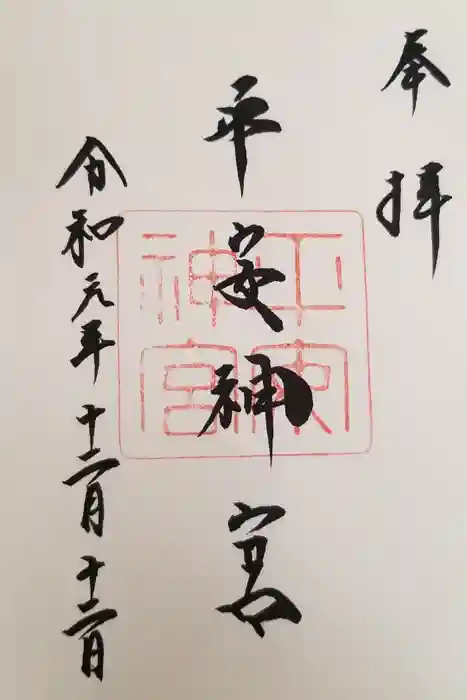 奉拝
平安神宮
令和元年十二月十二日
平安神宮